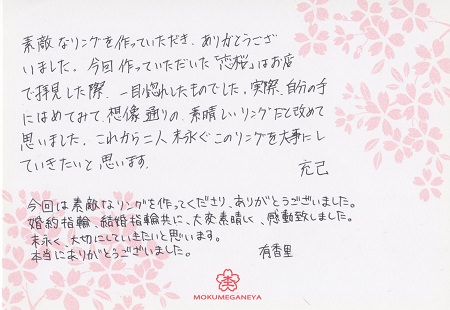 素敵なリングを作っていただき、ありがとうござ
いました。今回作っていただいた「恋桜」はお店
で拝見した際、一目惚れしたものでした。実際、自分の手
にはめてみて、想像通りの、素晴しいリングだと改めて
思いました。これから二人末永くこのリングを大事にし
ていきたいと思います。
充己
今回は素敵なリングを作ってくださり、ありがとうございました。
婚約指輪、結婚指輪共に、大変素晴しく、感動致しました。
末永く、大切にしていきたいと思います。
本当にありがとうございました。
有香里
MOKUMEGANEYA